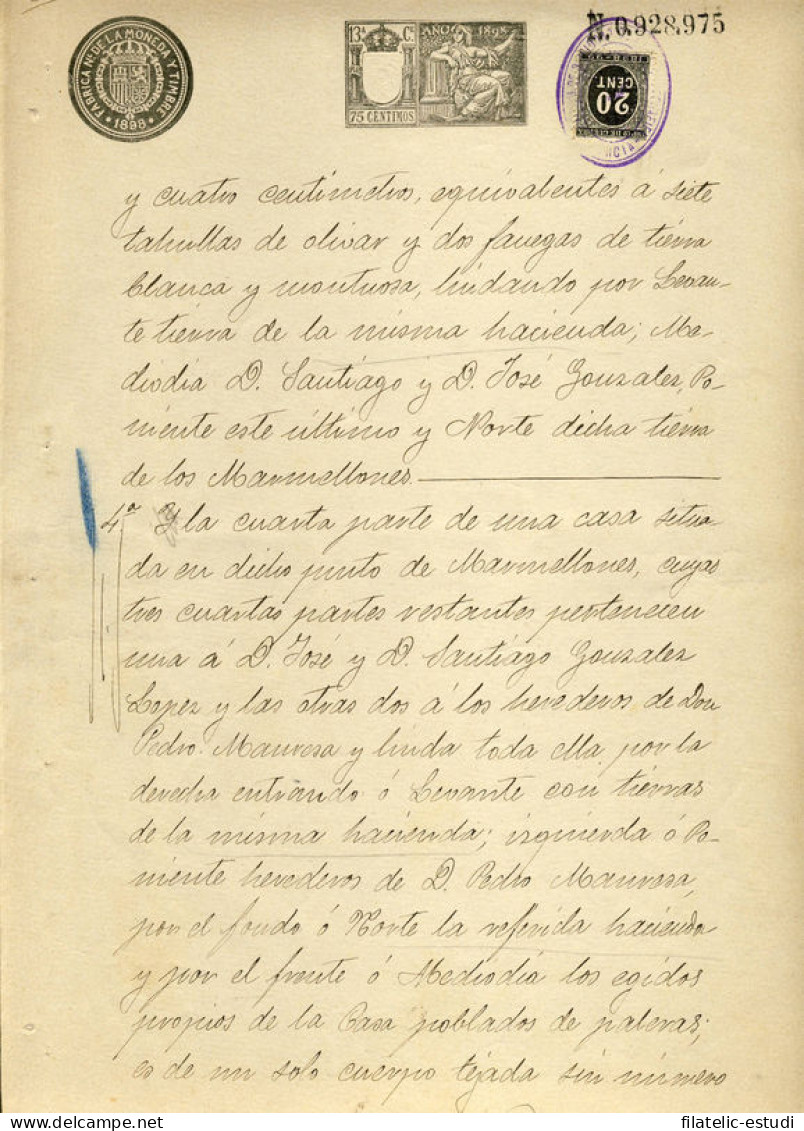 N. 0.928,975
FABRICA Nal DE LA MONEDA Y TIMBRE
1898
13ª Cs
AÑO 1898
75 CENTIMOS
20
CENT
y cuatro centímetros, equivalentes á siete
tahullas de olivar y dos fanegas de tierra
blanca y montuosa, lindando por Levan-
te tierra de la misma hacienda; Me-
diodia D. Santiago y D. José Gonzalez, Po-
niente este último y Norte dicha tierra
de los Marmellones.
4ª Y la cuarta parte de una casa situa-
da en dicho punto de Marmellones, cuyas
tres cuartas partes restantes pertenecen
una á D. José y D. Santiago Gonzalez
Lopez y las otras dos á los herederos de Don
Pedro Manresa y linda toda ella por la
derecha entrando ó Levante con tierras
de la misma hacienda; izquierda ó Po-
niente herederos de D. Pedro Manresa,
por el fondo ó Norte la referida hacienda
y por el frente ó Mediodia los egidos
propios de la Casa poblados de paleras;
es de un solo cuerpo tejada sin número
filatelic-estudi
delcampe.net